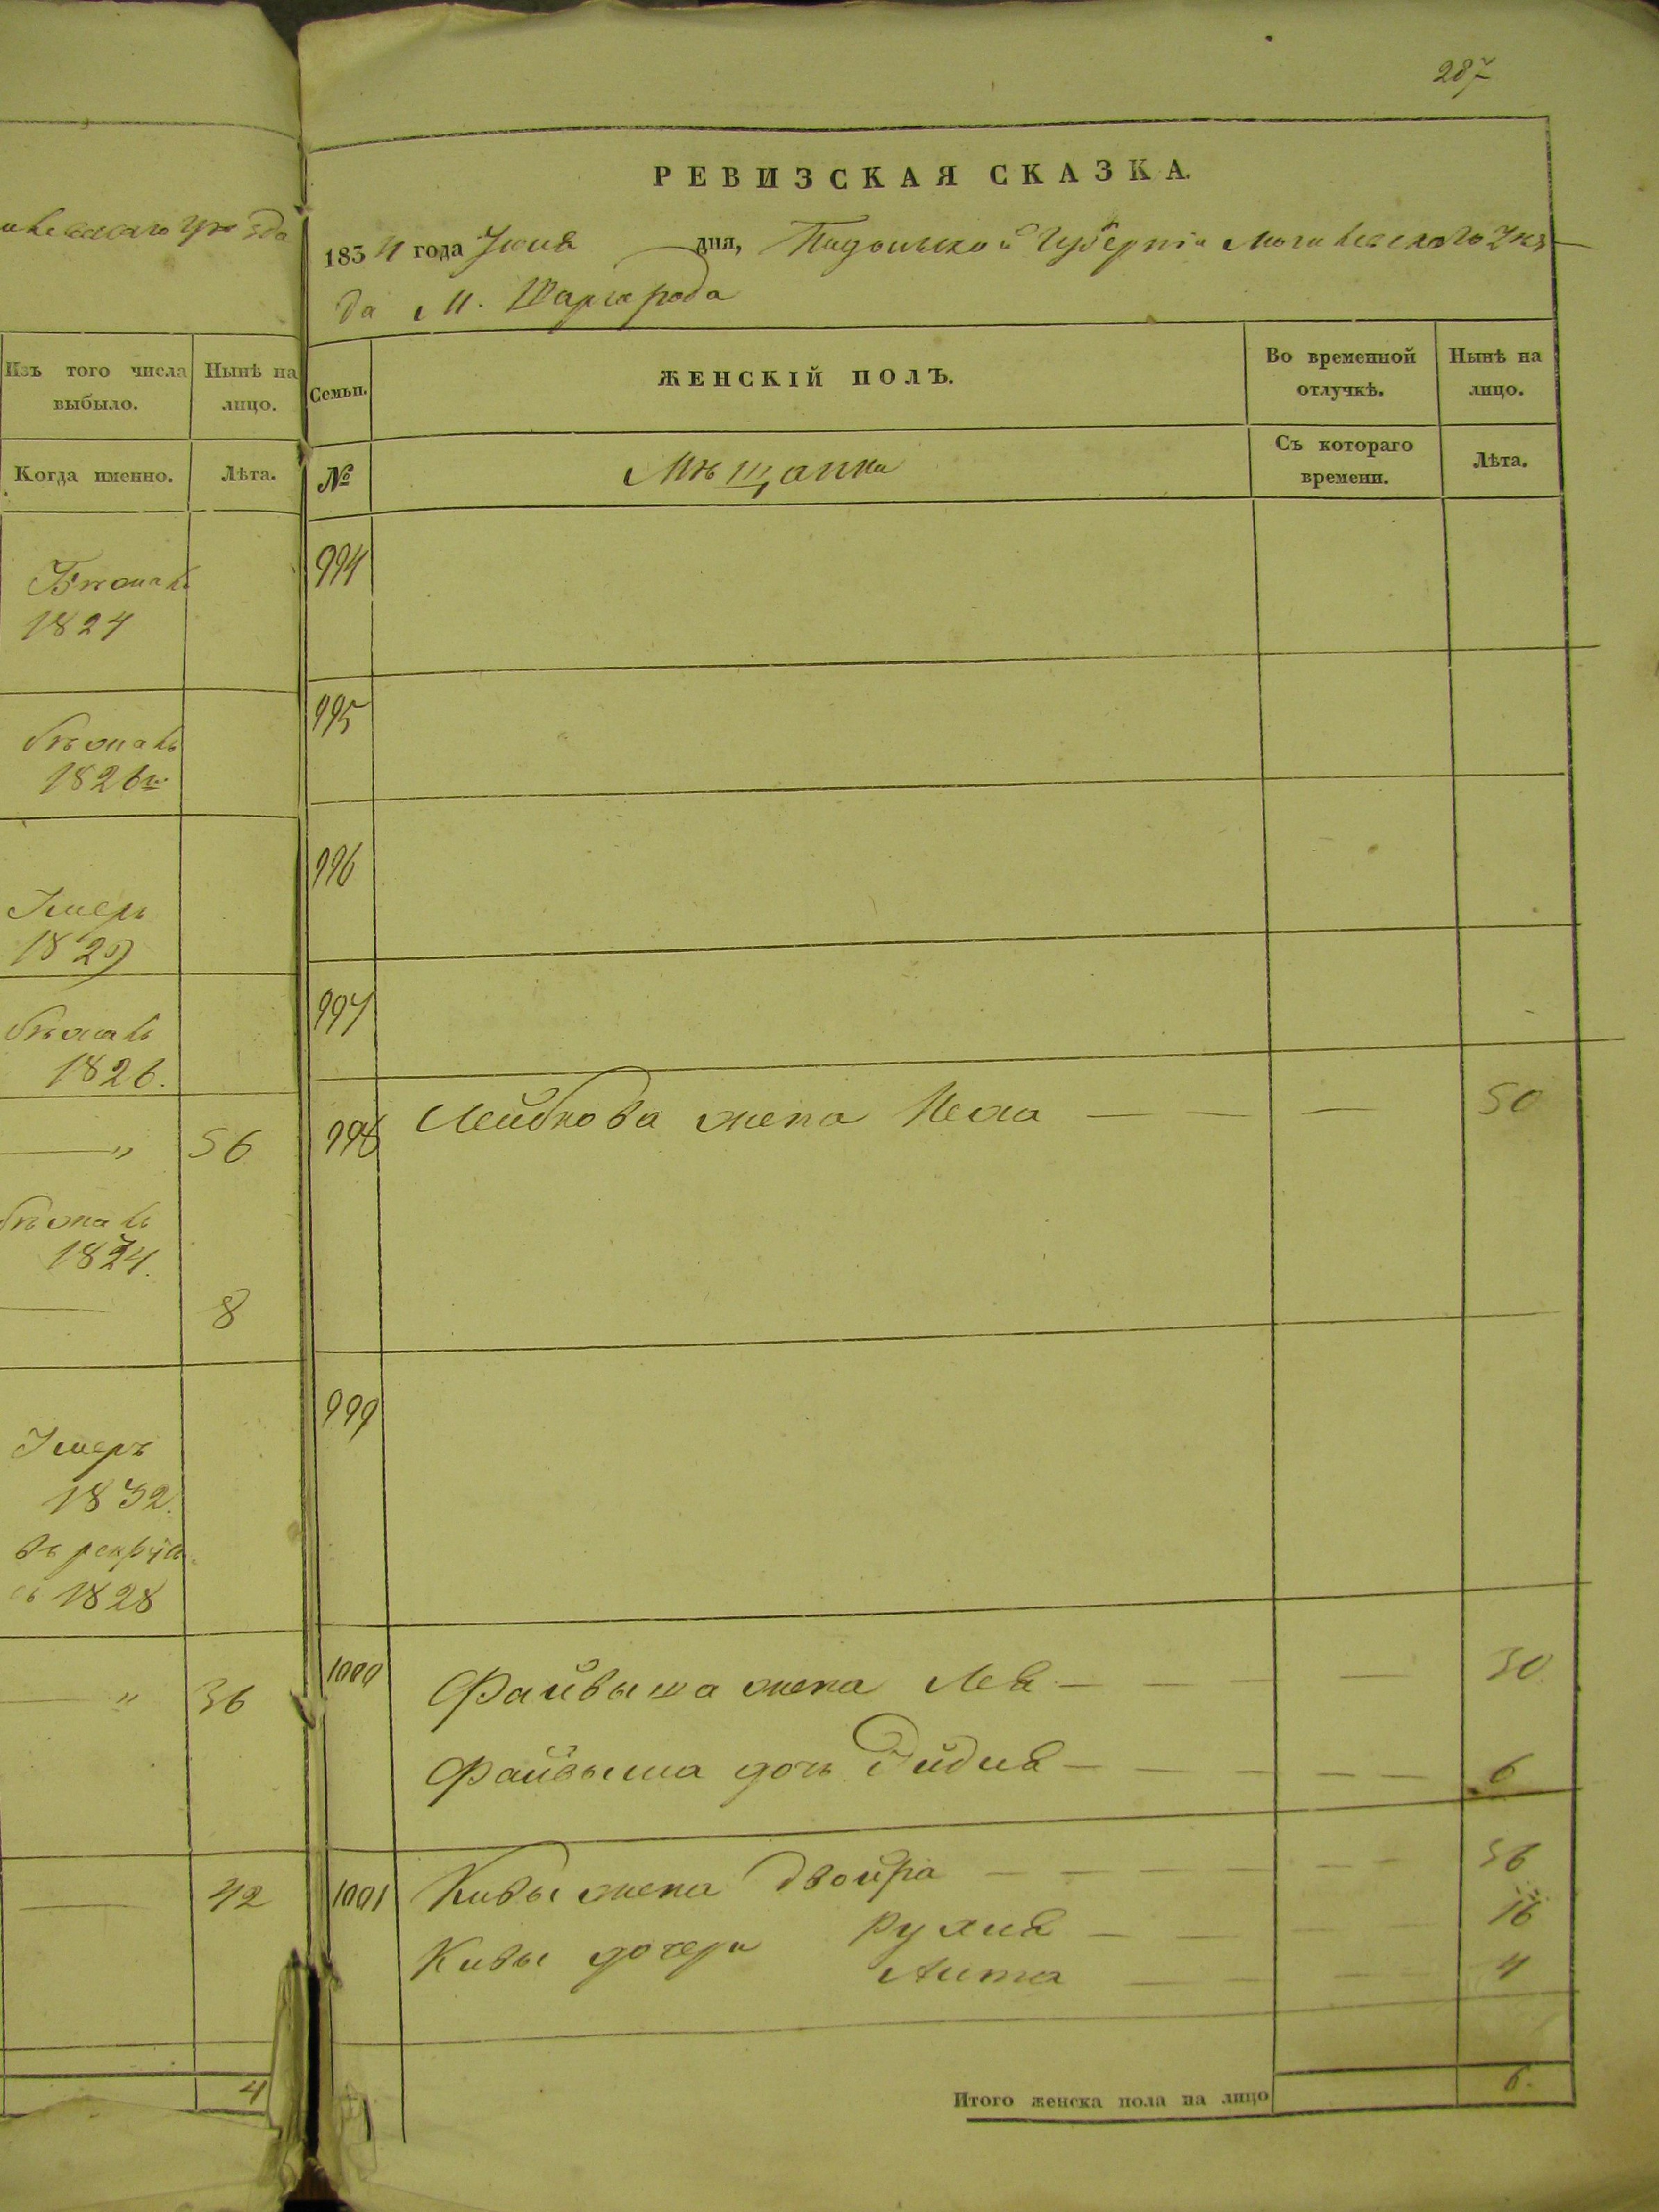 287
РЕВИЗСКАЯ СКАЗКА.
1834 года Іюня дня, Подольской Губерніи Могилевскаго Уѣз
да М. Шаргорода
уѣзда
Изъ того числа выбыло.
Нынѣ на лицо.
Когда именно.
Лѣта.
Семьи.
ЖЕНСКІЙ ПОЛЪ.
Во временной отлучкѣ.
Нынѣ на лицо.
№
Мѣщанки
Съ котораго времени.
Лѣта.
Бѣжалъ
1824
994
бѣжалъ
1826 г.
995
Умеръ
1829
996
бѣжалъ
1826.
997
— „ 56
998 Лейбкова жена — — — 50
бѣжалъ
1824.
— 8
999
Умеръ
1832.
въ рекруты
1828
— „ 36
1000 Файвыша жена Лея — — — — 30
Файвыша дочь — — — — — 6
— 42
1001 Кивы жена Двойра — — — — — — 36
Кивы дочери Рухля — — — — 16
— — — — 4
4
Итого женска пола на лицо 6.